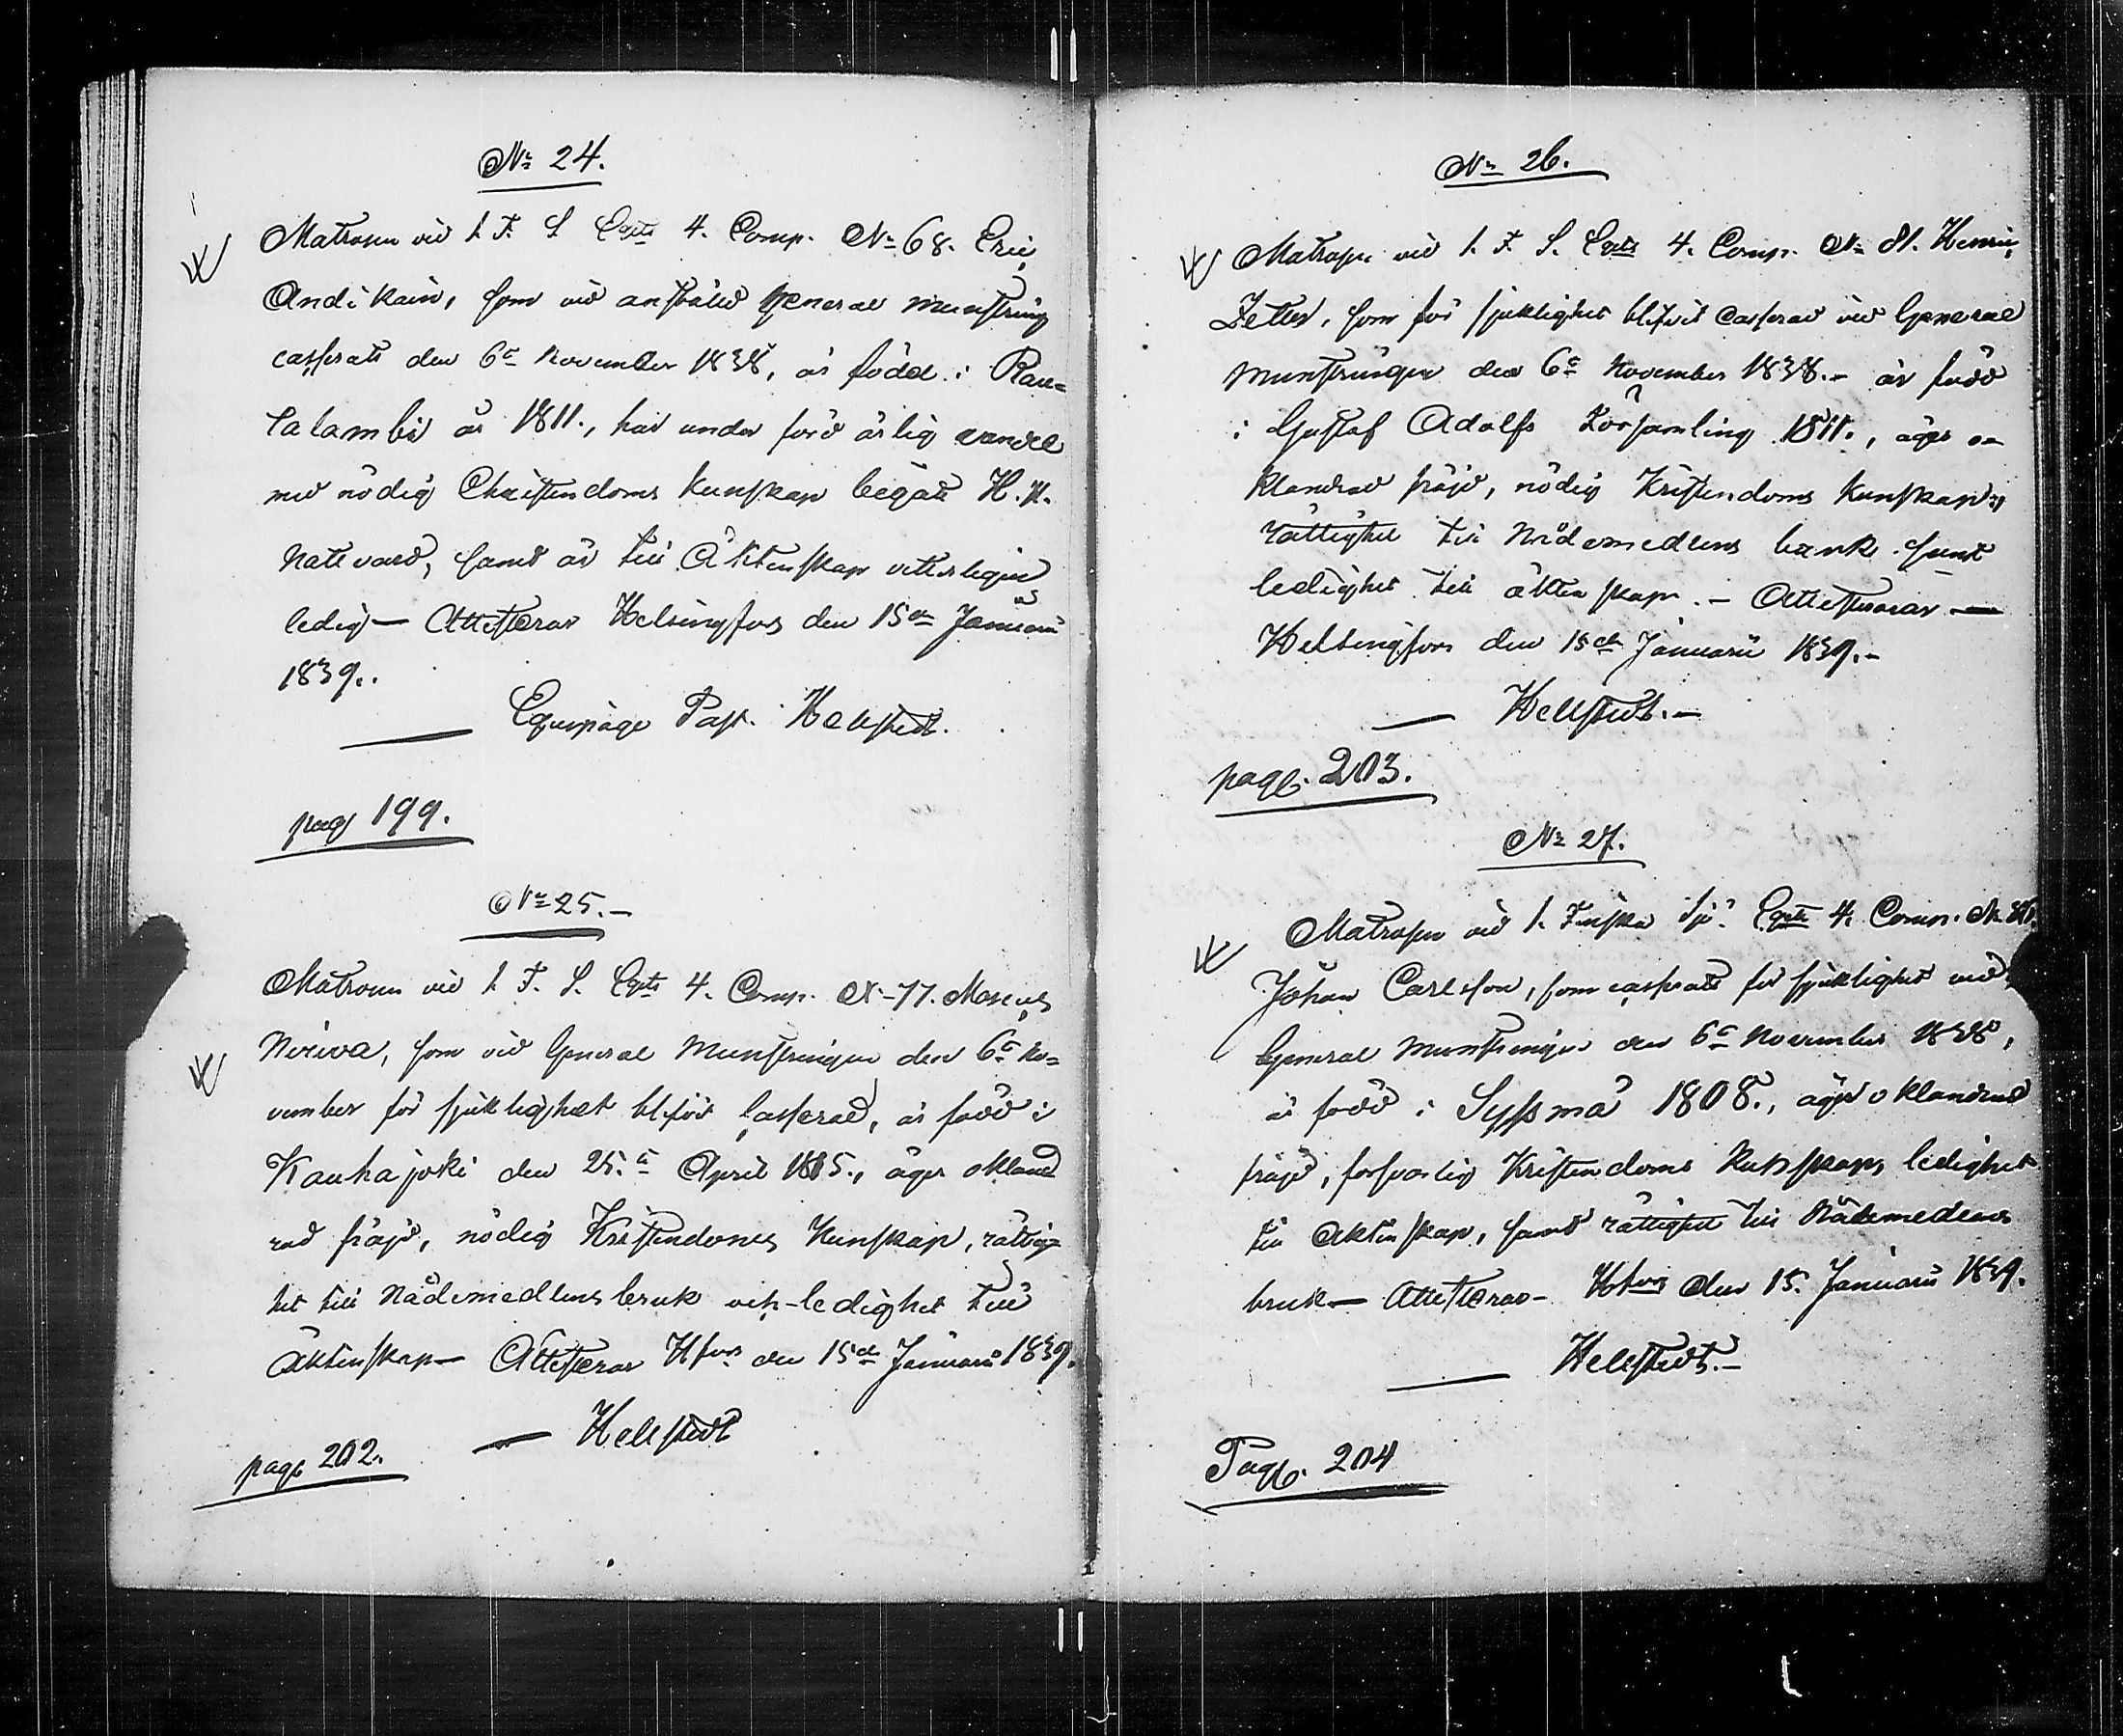 No 24.
Matrosen vid 1 F. S Eqts 4. Comp. No 68. Eric
Andikain, som vid anstäld General Munstring
casserats den 6e November 1838, är född i Rau=
talambi år 1811., har under förd ärlig vandel
med nödig Christendoms kunskap begått H. H.
Nattvard, samt är till Äktenskap vitterligen
ledig — Attesterar Helsingfors den 15de Januarii
1839..
— Equipage Past. Hellstedt.
pag 199.
No 25.—
Matrosen vid 1 F. S. Eqts 4. Comp. No 77.
som vid General Munstringen den 6e No=
vember för sjuklighet blifvit Casserad, är född i
Kauhajoki den 25.e April 1815., äger okland
rad fräjd, nödig Kristendoms Kunskap, rättig=
het till Nådemedlens bruk och ledighet till
Äktenskap — Attesterar Hfors den 15de Januarii 1839.
— Hellstedt
pag. 202.
No 26.
Matrosen vid 1. F. S. Eqts 4. Comp. No 81. Henric
Zetter, som för sjuklighet blifvit casserad vid General
Munstringen den 6e November 1838.— är född
i Gustaf Adolfs Församling 1811., äger o-
klandrad fräjd, nödig Kristendoms kunskap,
rättighet till Nådemedlens bruk samt
ledighet till äktenskap. — Attesterar —
Helsingfors den 15de Januarii 1839.—
— Hellstedt.—
pag. 203.
No 27.
Matrosen vid 1. Finska Sjö Eqts 4. Comp. No
Johan Carlsson, som casserats för sjuklighet vid
General Munstringen den 6e November 1838,
är född i Syssmä 1808., äger oklandrad
fräjd, försvarlig Kristendoms Kunskap, ledighet
till Äktenskap, samt rättighet till Nådemedlens
bruk — Attesterar — Hfors den 15. Januarii 1839.
— Hellstedt.—
Pag. 204